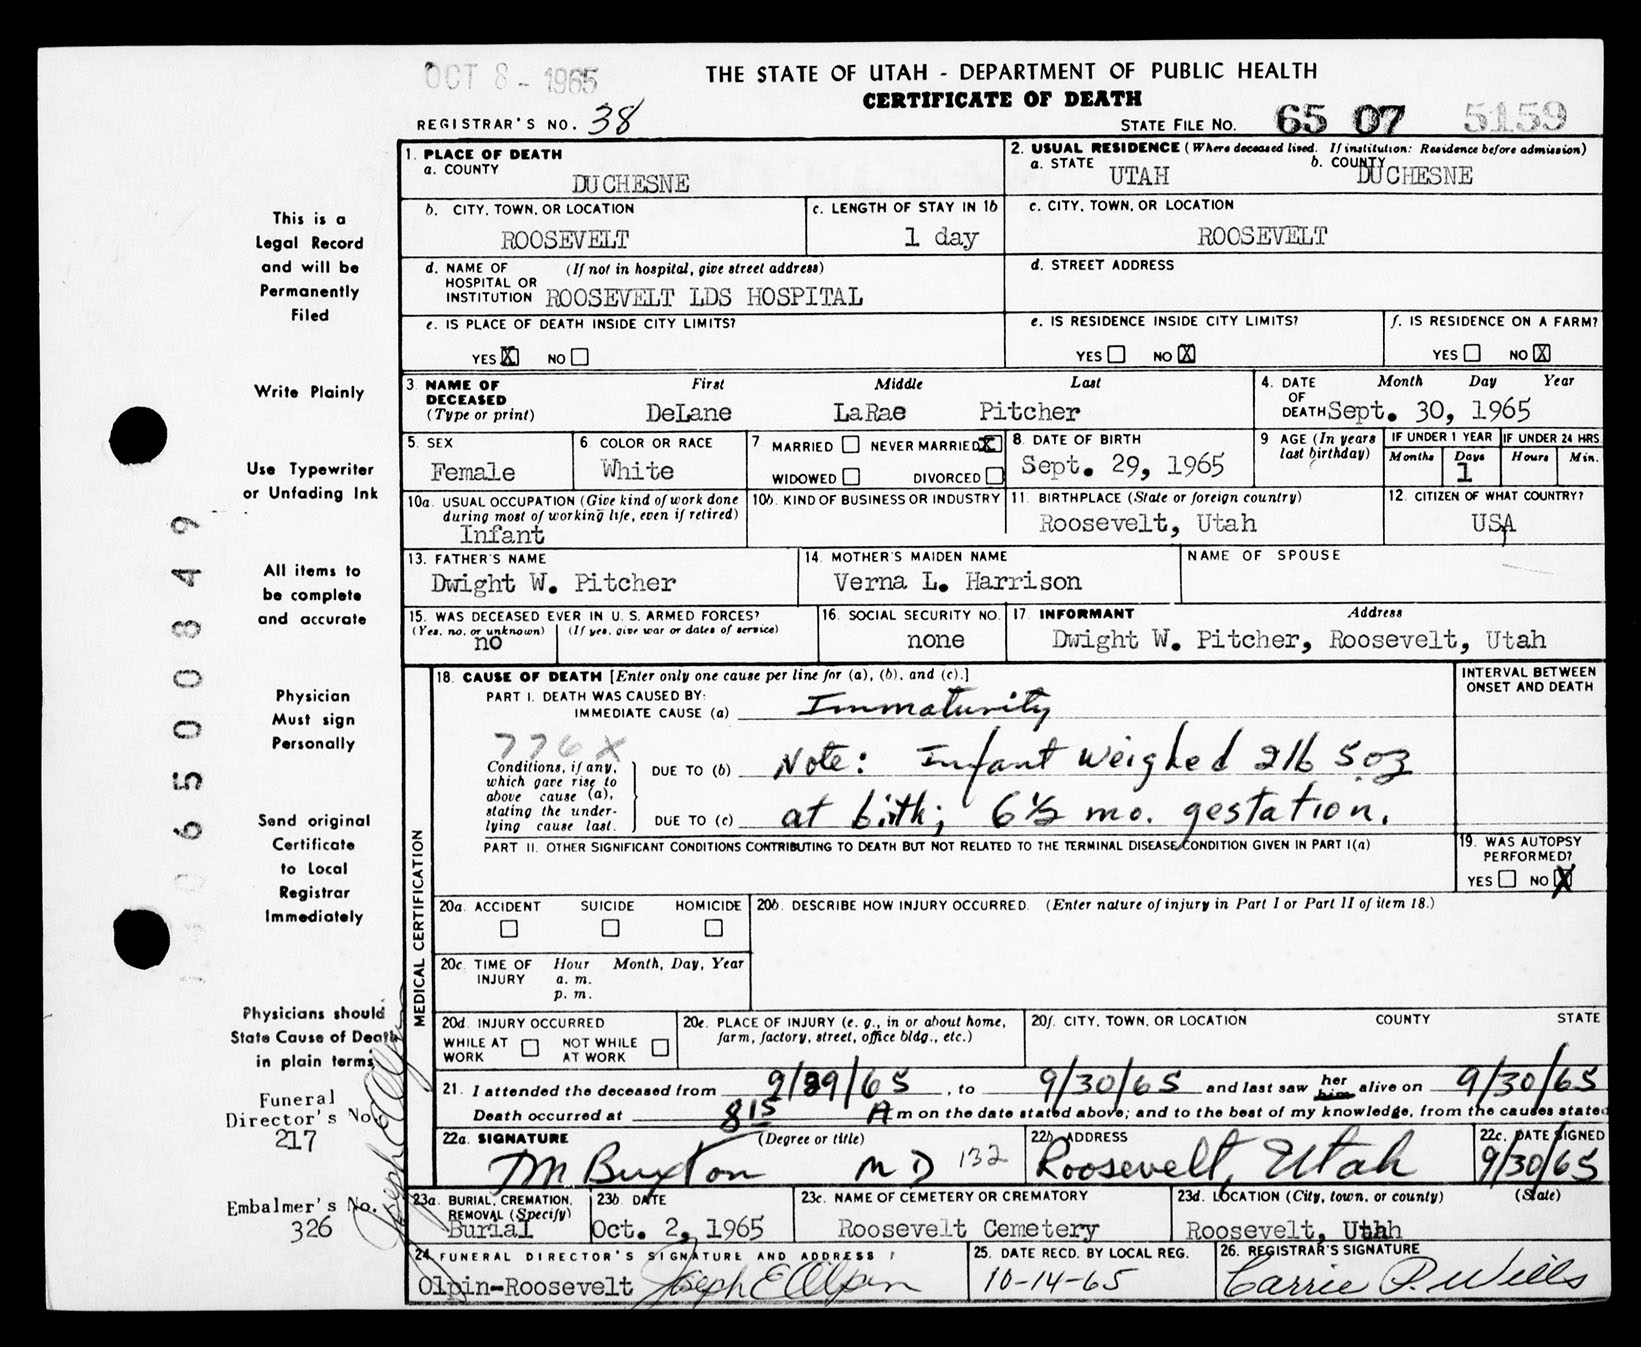 OCT 8 - 1965
THE STATE OF UTAH - DEPARTMENT OF PUBLIC HEALTH
CERTIFICATE OF DEATH
REGISTRAR'S NO. 38
STATE FILE NO. 65 07 5159
1. PLACE OF DEATH
a. COUNTY
DUCHESNE
2. USUAL RESIDENCE (Where deceased lived. If institution: Residence before admission)
a. STATE UTAH b. COUNTY DUCHESNE
b. CITY, TOWN, OR LOCATION
ROOSEVELT
c. LENGTH OF STAY IN 1b
1 day
c. CITY, TOWN, OR LOCATION
ROOSEVELT
d. NAME OF HOSPITAL OR INSTITUTION (If not in hospital, give street address)
ROOSEVELT LDS HOSPITAL
d. STREET ADDRESS
e. IS PLACE OF DEATH INSIDE CITY LIMITS?
YES X NO
e. IS RESIDENCE INSIDE CITY LIMITS?
YES NO X
f. IS RESIDENCE ON A FARM?
YES NO X
3. NAME OF DECEASED (Type or print)
First Middle Last
DeLane LaRae Pitcher
4. DATE OF DEATH Month Day Year
Sept. 30, 1965
5. SEX
Female
6. COLOR OR RACE
White
7 MARRIED NEVER MARRIED X
WIDOWED DIVORCED
8. DATE OF BIRTH
Sept. 29, 1965
9 AGE (In years last birthday)
IF UNDER 1 YEAR IF UNDER 24 HRS.
Months Days Hours Min.
1
10a. USUAL OCCUPATION (Give kind of work done during most of working life, even if retired)
Infant
10b. KIND OF BUSINESS OR INDUSTRY
11. BIRTHPLACE (State or foreign country)
Roosevelt, Utah
12. CITIZEN OF WHAT COUNTRY?
USA
13. FATHER'S NAME
Dwight W. Pitcher
14. MOTHER'S MAIDEN NAME
Verna L. Harrison
NAME OF SPOUSE
15. WAS DECEASED EVER IN U. S. ARMED FORCES?
(Yes, no, or unknown) (If yes, give war or dates of service)
no
16. SOCIAL SECURITY NO.
none
17. INFORMANT Address
Dwight W. Pitcher, Roosevelt, Utah
MEDICAL CERTIFICATION
18. CAUSE OF DEATH [Enter only one cause per line for (a), (b), and (c).]
INTERVAL BETWEEN ONSET AND DEATH
PART I. DEATH WAS CAUSED BY:
IMMEDIATE CAUSE (a) Immaturity
776 X
Conditions, if any, which gave rise to above cause (a), stating the underlying cause last.
DUE TO (b) Note: Infant weighed 2 lb 5 oz
DUE TO (c) at birth; 6 1/2 mo. gestation.
PART II. OTHER SIGNIFICANT CONDITIONS CONTRIBUTING TO DEATH BUT NOT RELATED TO THE TERMINAL DISEASE CONDITION GIVEN IN PART I(a)
19. WAS AUTOPSY PERFORMED?
YES NO X
20a. ACCIDENT SUICIDE HOMICIDE
20b. DESCRIBE HOW INJURY OCCURRED. (Enter nature of injury in Part I or Part II of item 18.)
20c. TIME OF INJURY Hour Month, Day, Year
a. m.
p. m.
20d. INJURY OCCURRED
WHILE AT WORK NOT WHILE AT WORK
20e. PLACE OF INJURY (e. g., in or about home, farm, factory, street, office bldg., etc.)
20f. CITY, TOWN, OR LOCATION COUNTY STATE
21. I attended the deceased from 9/29/65, to 9/30/65 and last saw her him alive on 9/30/65
Death occurred at 8 15 A m on the date stated above; and to the best of my knowledge, from the causes stated
22a. SIGNATURE (Degree or title)
M Buxton M D 132
22b. ADDRESS
Roosevelt, Utah
22c. DATE SIGNED
9/30/65
23a. BURIAL, CREMATION, REMOVAL (Specify)
Burial
23b. DATE
Oct. 2, 1965
23c. NAME OF CEMETERY OR CREMATORY
Roosevelt Cemetery
23d. LOCATION (City, town, or county) (State)
Roosevelt, Utah
24. FUNERAL DIRECTOR'S SIGNATURE AND ADDRESS
Olpin-Roosevelt Joseph E Olpin
25. DATE RECD. BY LOCAL REG.
10-14-65
26. REGISTRAR'S SIGNATURE
Carrie P. Wills
This is a
Legal Record
and will be
Permanently
Filed
Write Plainly
Use Typewriter
or Unfading Ink
All items to
be complete
and accurate
Physician
Must sign
Personally
Send original
Certificate
to Local
Registrar
Immediately
Physicians should
State Cause of Death
in plain terms
Funeral
Director's No.
217
Embalmer's No.
326
Joseph E Olpin
0 6 5 0 0 8 4 9